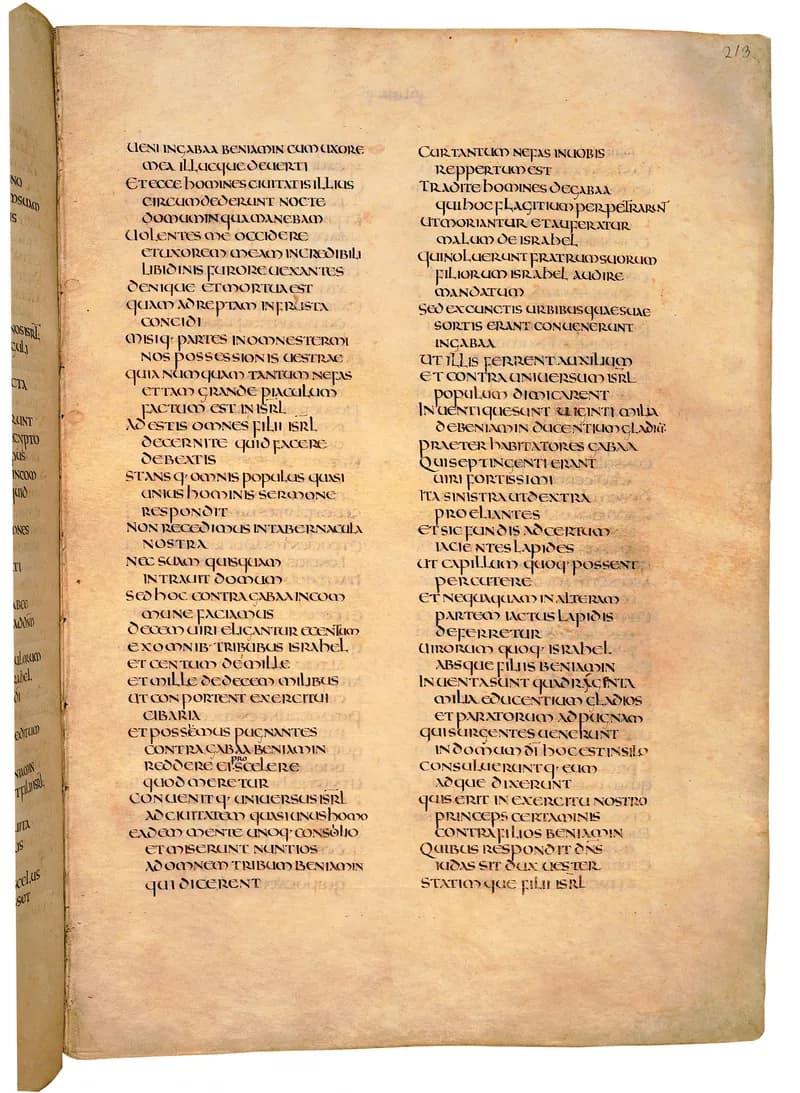 213
UENI INGABAA BENIAMIN CUM UXORE
MEA ILLUCQUE DEUERTI
ET ECCE HOMINES CIUITATIS ILLIUS
CIRCUMDEDERUNT NOCTE
DOMUM IN QUA MANEBAM
UOLENTES ME OCCIDERE
ET UXOREM MEAM INCREDIBILI
LIBIDINIS FURORE UEXANTES
DENIQUE ET MORTUA EST
QUAM ADREPTAM IN FRUSTA
CONCIDI
MISIQ· PARTES IN OMNES TERMI
NOS POSSESSIONIS UESTRAE
QUIA NUMQUAM TANTUM NEFAS
ET TAM GRANDE PIACULUM
FACTUM EST IN ISRL
ADESTIS OMNES FILII ISRL
DECERNITE QUID FACERE
DEBEATIS
STANSQ· OMNIS POPULUS QUASI
UNIUS HOMINIS SERMONE
RESPONDIT
NON RECEDIMUS IN TABERNACULA
NOSTRA
NEC SUAM QUISQUAM
INTRAUIT DOMUM
SED HOC CONTRA GABAA IN COM
MUNE FACIAMUS
DECEM UIRI ELIGANTUR E CENTUM
EX OMNIB· TRIBUBUS ISRAHEL
ET CENTUM DE MILLE
ET MILLE DE DECEM MILIBUS
UT CONPORTENT EXERCITUI
CIBARIA
ET POSSEMUS PUGNANTES
CONTRA GABAA BENIAMIN
REDDERE EI PRO SCELERE
QUOD MERETUR
CONUENITQ· UNIUERSUS ISRL
AD CIUITATEM QUASI UNUS HOMO
EADEM MENTE UNOQ· CONSILIO
ET MISERUNT NUNTIOS
AD OMNEM TRIBUM BENIAMIN
QUI DICERENT
CUR TANTUM NEFAS IN UOBIS
REPPERTUM EST
TRADITE HOMINES DE GABAA
QUI HOC FLAGITIUM PERPETRARUNT
UT MORIANTUR ET AUFERATUR
MALUM DE ISRAHEL
QUI NOLUERUNT FRATRUM SUORUM
FILIORUM ISRAHEL AUDIRE
MANDATUM
SED EX CUNCTIS URBIBUS QUAE SUAE
SORTIS ERANT CONUENERUNT
IN GABAA
UT ILLIS FERRENT AUXILIUM
ET CONTRA UNIUERSUM ISRL
POPULUM DIMICARENT
INUENTIQUE SUNT UIGINTI MILIA
DE BENIAMIN DUCENTIUM GLADIU
PRAETER HABITATORES GABAA
QUI SEPTINGENTI ERANT
UIRI FORTISSIMI
ITA SINISTRA UT DEXTRA
PROELIANTES
ET SIC FUNDIS AD CERTUM
IACIENTES LAPIDES
UT CAPILLUM QUOQ· POSSENT
PERCUTERE
ET NEQUAQUAM IN ALTERAM
PARTEM IACTUS LAPIDIS
DEFERRETUR
UIRORUM QUOQ· ISRAHEL
ABSQUE FILIIS BENIAMIN
INUENTA SUNT QUADRAGINTA
MILIA EDUCENTIUM GLADIOS
ET PARATORUM AD PUGNAM
QUI SURGENTES UENERUNT
IN DOMUM DI HOC EST IN SILO
CONSULUERUNTQ· EUM
ADQUE DIXERUNT
QUIS ERIT IN EXERCITU NOSTRO
PRINCEPS CERTAMINIS
CONTRA FILIOS BENIAMIN
QUIBUS RESPONDIT DNS
IUDAS SIT DUX UESTER
STATIMQUE FILII ISRL